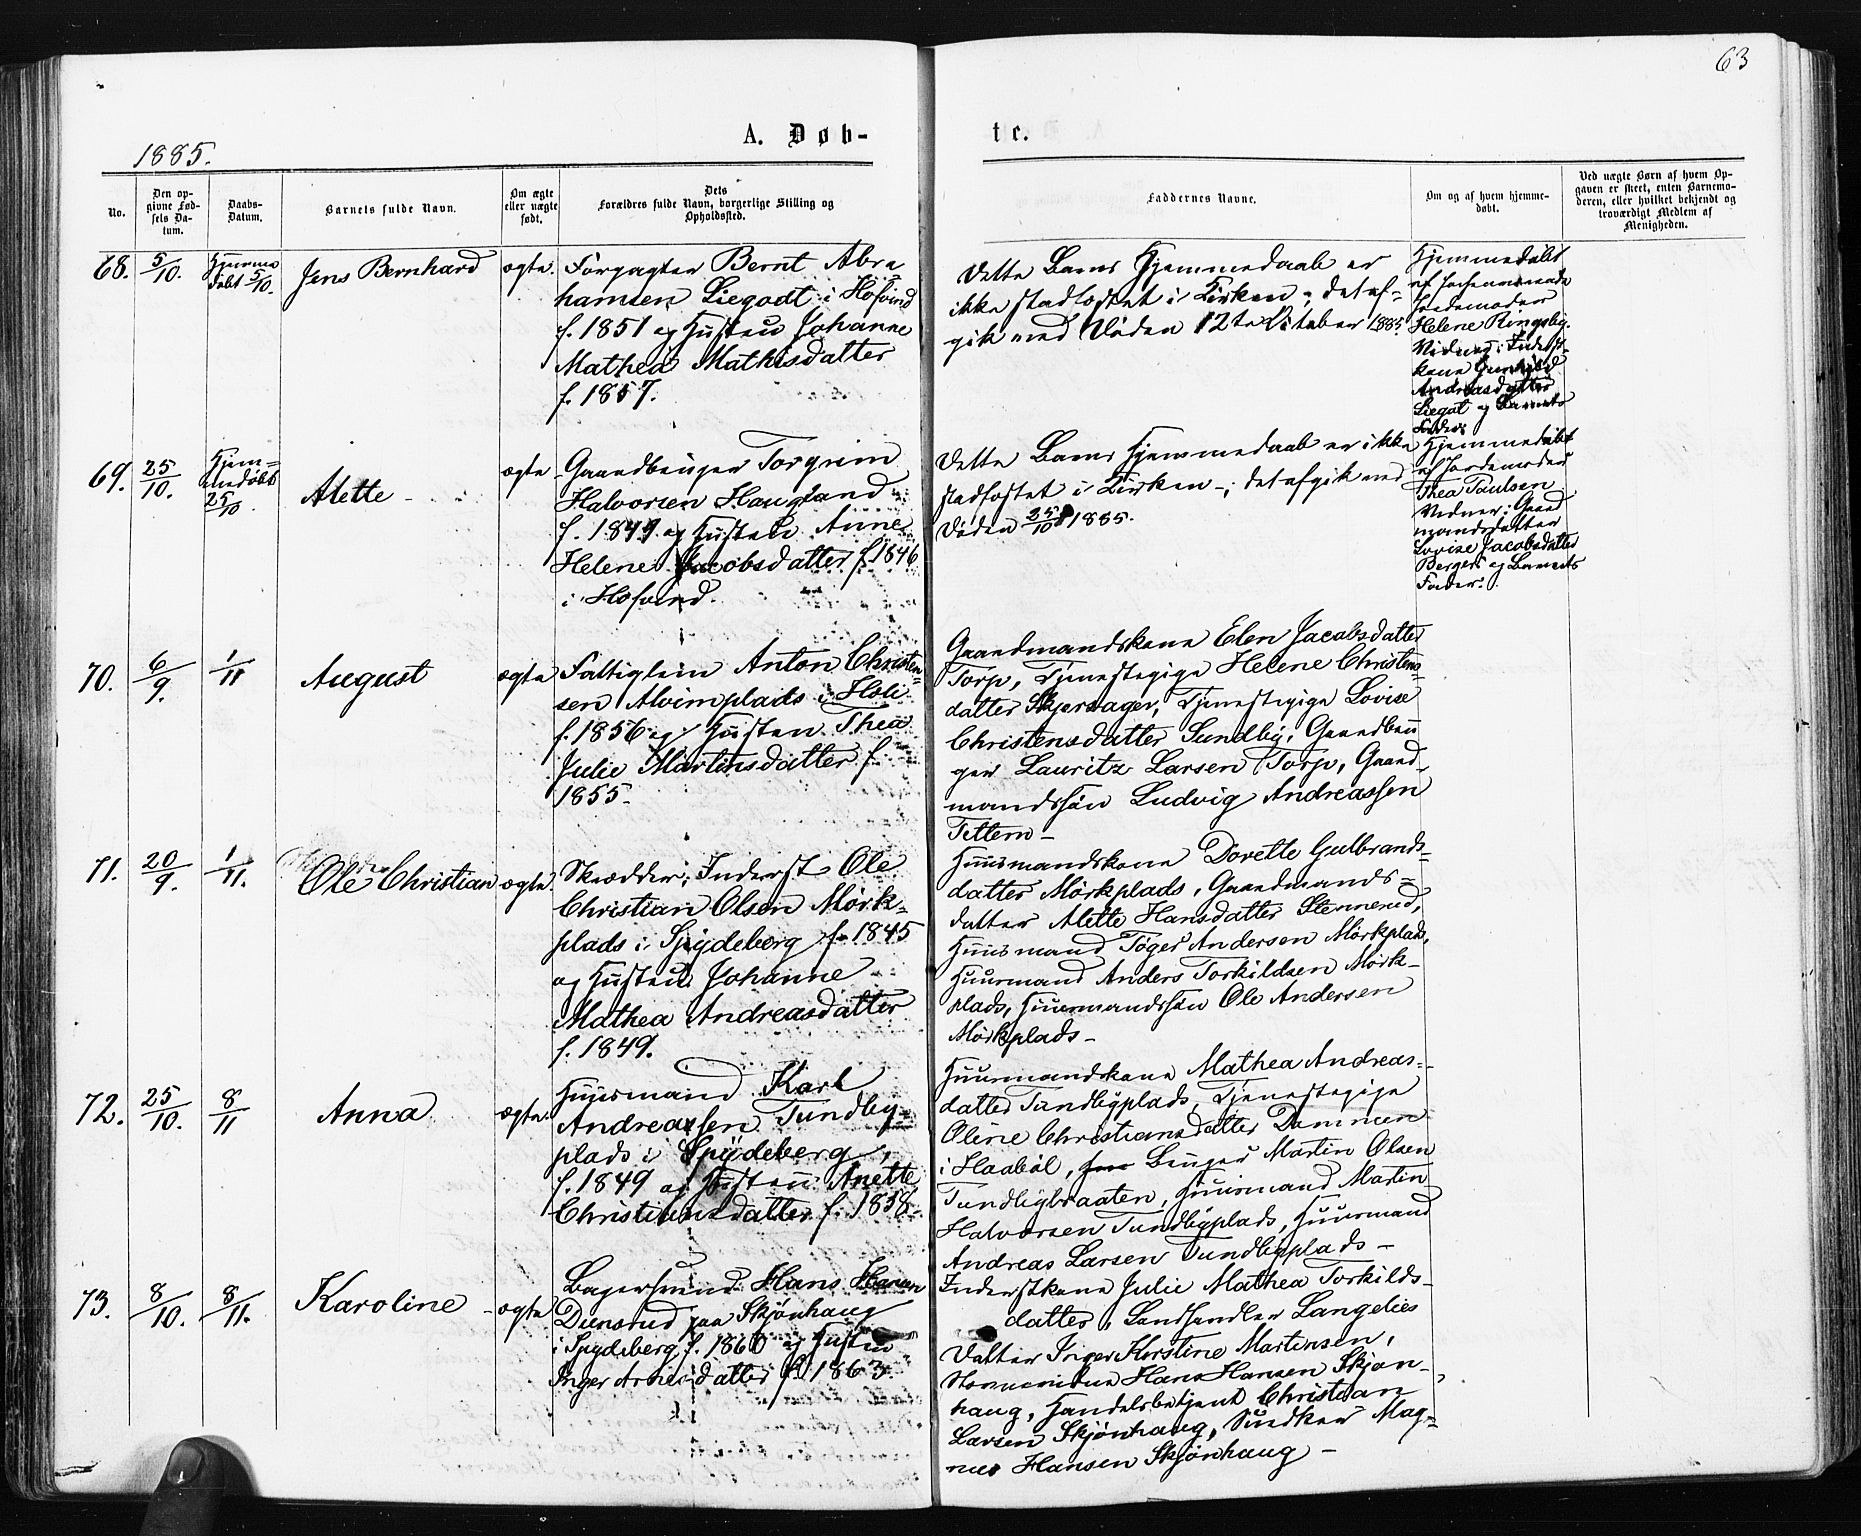 63
1885.
A. Døb-
te.
No.
Den op-
givne Fød-
sels Da-
tum.
Daabs-
Datum.
Barnets fulde Navn.
Om ægte
eller uægte
født.
Dets
Forældres fulde Navn, borgerlige Stilling og
Opholdssted.
Faddernes Navne.
Om og af hvem hjemme-
døbt.
Ved uægte Børn af hvem Op-
gaven er skeet, enten Barnemo-
deren, eller hvilket bekjendt og
troværdigt Medlem af
Menigheden.
68.
5/10.
Hjemme
døbt 5/10.
Jens Bernhard
ægte.
Forpagter Bernt Abra-
hamsen Liegodt i Hofvind
f. 1851 og Hustru Johanne
Mathea Mathisdatter
f. 1857.
Dette Barns Hjemmedaab er
ikke stadfæstet i Kirken; det af-
gik ved Døden 12te Oktober 1885
Hjemmedøbt
af
Jordemoder
Helene Ringsby.
Vidner: Inderst-
kone Gunhild
Andreasdatter
Liegot og Barnets
Fader.
69.
25/10.
Hjem-
medøbt
25/10.
Alette
ægte
Gaardbruger Torgrim
Halvorsen Haugland
f. 1847 og Hustru Anne
Helene Jacobsdatter f. 1846
i Hofvind.
Dette Barns Hjemmedaab er ikke
stadfæstet i Kirken; det afgik ved
Døden 25/10 1885.
Hjemmedøbt
af Jordemoder
Thea Paulsen
Vidner: Gaard
mandsdatter
Lovise Jacobsdatter
Berger og Barnets
Fader.
70.
6/9.
1/11
August
ægte
Fattiglem Anton Christen-
sen Alvimplads i Holi
f. 1856 og Hustru Thea
Julie Martinsdatter f.
1855.
Gaardmandskone Elen Jacobsdatter
Torp, Tjenestepige Helene Christens-
datter Skjersager, Tjenestepige Lovise
Christensdatter Sundby, Gaardbru
ger Lauritz Larsen Torp, Gaard-
mandssøn Ludvig Andreassen
Tittem
71.
20/9.
1/11.
Ole Christian
ægte.
Skrædder, Inderst Ole
Christian Olsen Mørk-
plads i Spydeberg f. 1845
og Hustru Johanne
Mathea Andreasdatter
f. 1849.
Huusmandskone Dorette Gulbrands-
datter Mørkplads, Gaardmands-
datter Alette Hansdatter Stennerud,
Huusmand Tøger Andersen Mørkplads,
Huusmand Anders Torkildsen Mørk-
plads, Huusmandssøn Ole Andersen
Mørkplads
72.
25/10.
8/11
Anna
ægte.
Huusmand Karl
Andreassen Tundby-
plads i Spydeberg,
f. 1849 og Hustru Anette
Christiansdatter f. 1858.
Huusmandskone Mathea Andreas-
datter Tundbyplads, Tjenestepige
Oline Christiansdatter Dammen
i Haabøl, Bruger Martin Olsen
Tundbybraaten, Huusmand Martin
Halvorsen Tundbyplads, Huusmand
Andreas Larsen Tundbyplads
73.
8/10.
8/11.
Karoline
ægte
Bagersvend Hans Hansen
Dunsrud paa Skjønhaug
i Spydeberg f. 1860 og Hustru
Inger Arnesdatter f. 1863.
Inderstkone Julie Mathea Torkilds-
datter, Landhandler Langelies
Datter Inger Kirstine Martinsen,
Hans Hansen Skjøn-
haug, Handelsbetjent Christian
Larsen Skjønhaug, Snedker Mag-
nus Hansen Skjønhaug